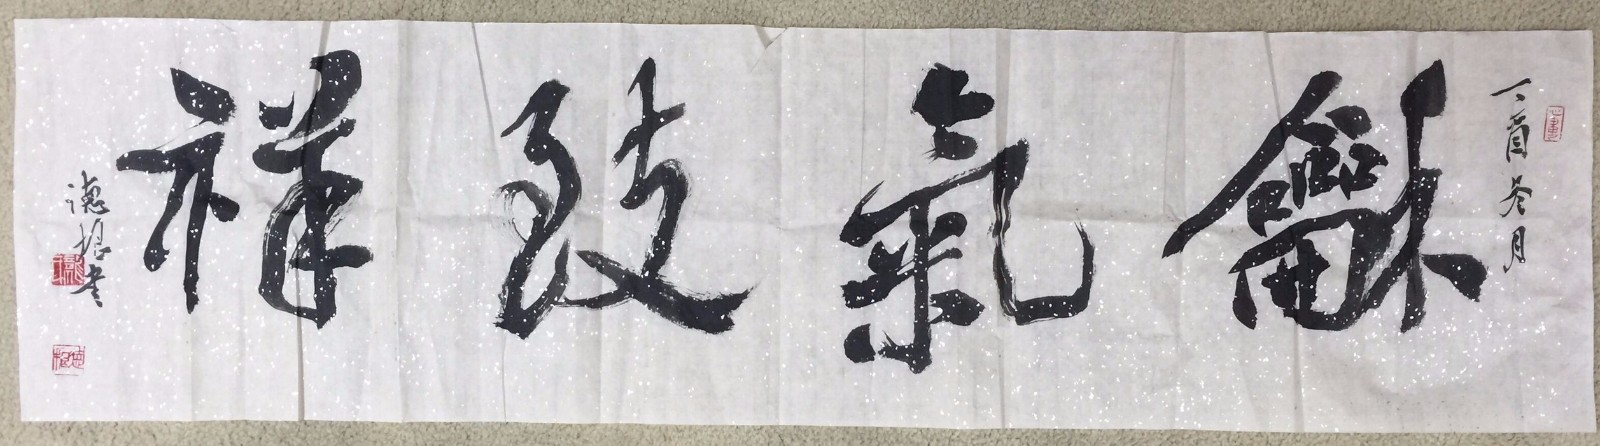 丁酉冬月
龢氣致祥
德根书